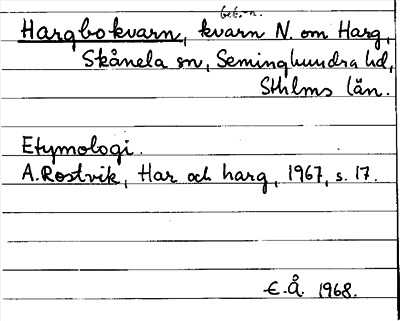 beb.-n.
Hargbokvarn, kvarn N. om Harg,
Skånela sn, Seminghundra hd,
Sthlms län.
Etymologi.
A. Rostvik, Har och harg, 1967, s. 17.
E.Å. 1968.